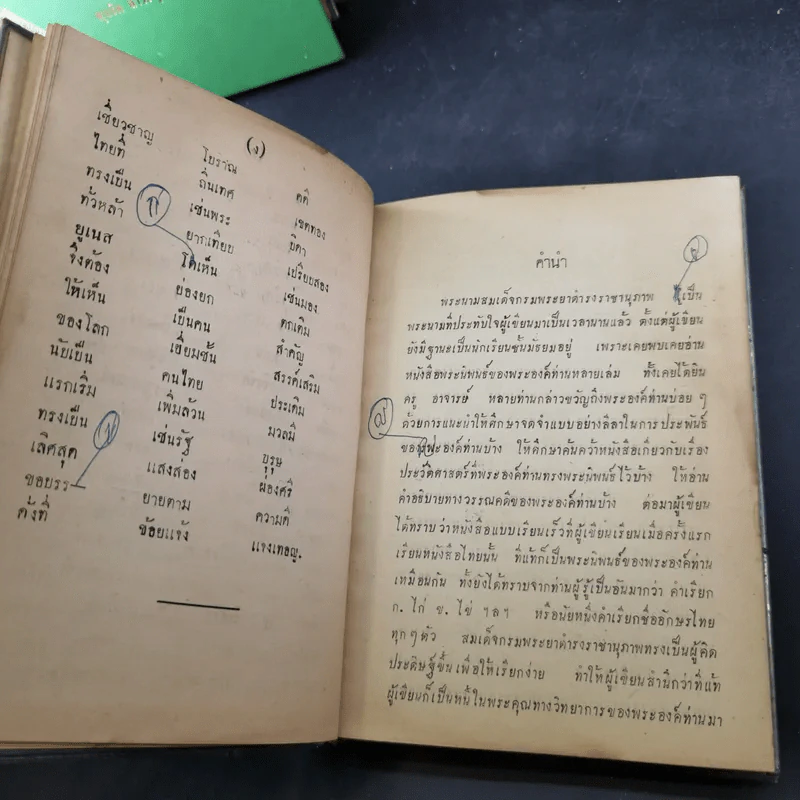 (ง)
เชี่ยวชาญ โบราณ คดี
ไทยที่ ถิ่นเทศ เขตทอง
ทรงเป็น เช่นพระ บิดา
ทั่วหล้า ยากเทียบ เปรียบสอง
ยูเนส โกเห็น เช่นมอง
จึงต้อง ย่องยก ตกเติม
ให้เห็น เป็นคน สำคัญ
ของโลก เอี่ยมชั้น สรรค์เสริม
นับเป็น คนไทย ประเดิม
แรกเริ่ม เพิ่มล้วน มวลมี
ทรงเป็น เช่นรัฐ บุรุษ
เลิศสุด แสงส่อง ผ่องศรี
ขอบรร ยายตาม ความดี
ดังที่ ข้อยแจ้ง แจงเทอญ.
คำนำ
พระนามสมเด็จกรมพระยาดำรงราชานุภาพ เป็น
พระนามที่ประทับใจผู้เขียนมาเป็นเวลานานแล้ว ตั้งแต่ผู้เขียน
ยังมีฐานะเป็นนักเรียนชั้นมัธยมอยู่ เพราะเคยพบเคยอ่าน
หนังสือพระนิพนธ์ของพระองค์ท่านหลายเล่ม ทั้งเคยได้ยิน
ครู อาจารย์ หลายท่านกล่าวขวัญถึงพระองค์ท่านบ่อย ๆ
ด้วยการแนะนำให้ศึกษาจดจำแบบอย่างลีลาในการประพันธ์
ของพระองค์ท่านบ้าง ให้ศึกษาค้นคว้าหนังสือเกี่ยวกับเรื่อง
ประวัติศาสตร์ที่พระองค์ท่านทรงพระนิพนธ์ไว้บ้าง ให้อ่าน
คำอธิบายทางวรรณคดีของพระองค์ท่านบ้าง ต่อมาผู้เขียน
ได้ทราบว่าหนังสือแบบเรียนเร็วที่ผู้เขียนเรียนเมื่อครั้งแรก
เรียนหนังสือไทยนั้น ที่แท้ก็เป็นพระนิพนธ์ของพระองค์ท่าน
เหมือนกัน ทั้งยังได้ทราบจากท่านผู้รู้เป็นอันมากว่า คำเรียก
ก. ไก่ ข. ไข่ ฯลฯ หรือนัยหนึ่งคำเรียกชื่ออักษรไทย
ทุกๆตัว สมเด็จกรมพระยาดำรงราชานุภาพทรงเป็นผู้คิด
ประดิษฐ์ขึ้นเพื่อให้เรียกง่าย ทำให้ผู้เขียนสำนึกว่าที่แท้
ผู้เขียนก็เป็นหนี้ในพระคุณทางวิทยาการของพระองค์ท่านมา